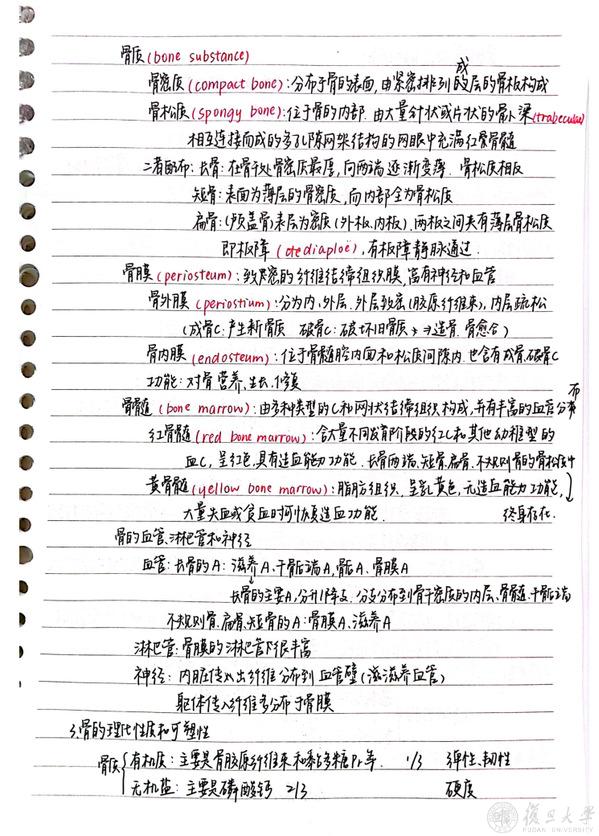 骨质 (bone substance)
骨密质 (compact bone): 分布于骨的表面, 由紧密排列成的层的骨板构成
骨松质 (spongy bone): 位于骨的内部. 由大量针状或片状的骨小梁(trabeculae)
相互连接而成的多孔隙网架结构的网眼中充满红骨髓
二者配布: 长骨: 在骨干处骨密质最厚, 向两端逐渐变薄. 骨松质相反
短骨: 表面为薄层的骨密质, 向内部全为骨松质
扁骨: (颅盖骨) 表层为密质 (外板、内板), 两板之间夹有薄层骨松质
即板障 (diploë), 有板障静脉通过.
骨膜 (periosteum): 致密的纤维结缔组织膜, 富有神经和血管
骨外膜 (periostium): 分为内、外层. 外层致密 (胶原纤维束), 内层疏松
(成骨C: 产生新骨质 破骨C: 破坏旧骨质 → 造骨. 骨愈合)
骨内膜 (endosteum): 位于骨髓腔内面和松质间隙内. 也含有成骨.破骨C
功能: 对骨营养、生长、修复
骨髓 (bone marrow): 由多种类型的C和网状结缔组织构成, 并有丰富的血管分布
红骨髓 (red bone marrow): 含大量不同发育阶段的红C和其他幼稚型的
血C, 呈红色, 具有造血能力功能. 长骨两端.短骨.扁骨.不规则骨的骨松质中
黄骨髓 (yellow bone marrow): 脂肪组织. 呈黄色, 无造血能力功能,
大量失血或贫血时可恢复造血功能. 终身存在.
骨的血管、淋巴管和神经
血管: 长骨的A: 滋养A、干骺端A, 骺A、骨膜A
长骨的主要A, 分升降支. 分支分布到骨干密质的内层、骨髓、干骺端
不规则骨.扁骨.短骨的A: 骨膜A、滋养A
淋巴管: 骨膜的淋巴管很丰富
神经: 内脏传出纤维分布到血管壁 (滋滋养血管)
躯体传入纤维多分布于骨膜
3.骨的理化性质和可塑性
骨质 { 有机质: 主要是骨胶原纤维束和黏多糖Pr等. 1/3 弹性、韧性
无机盐: 主要是磷酸钙 2/3 硬度
復旦大學
FUDAN UNIVERSITY